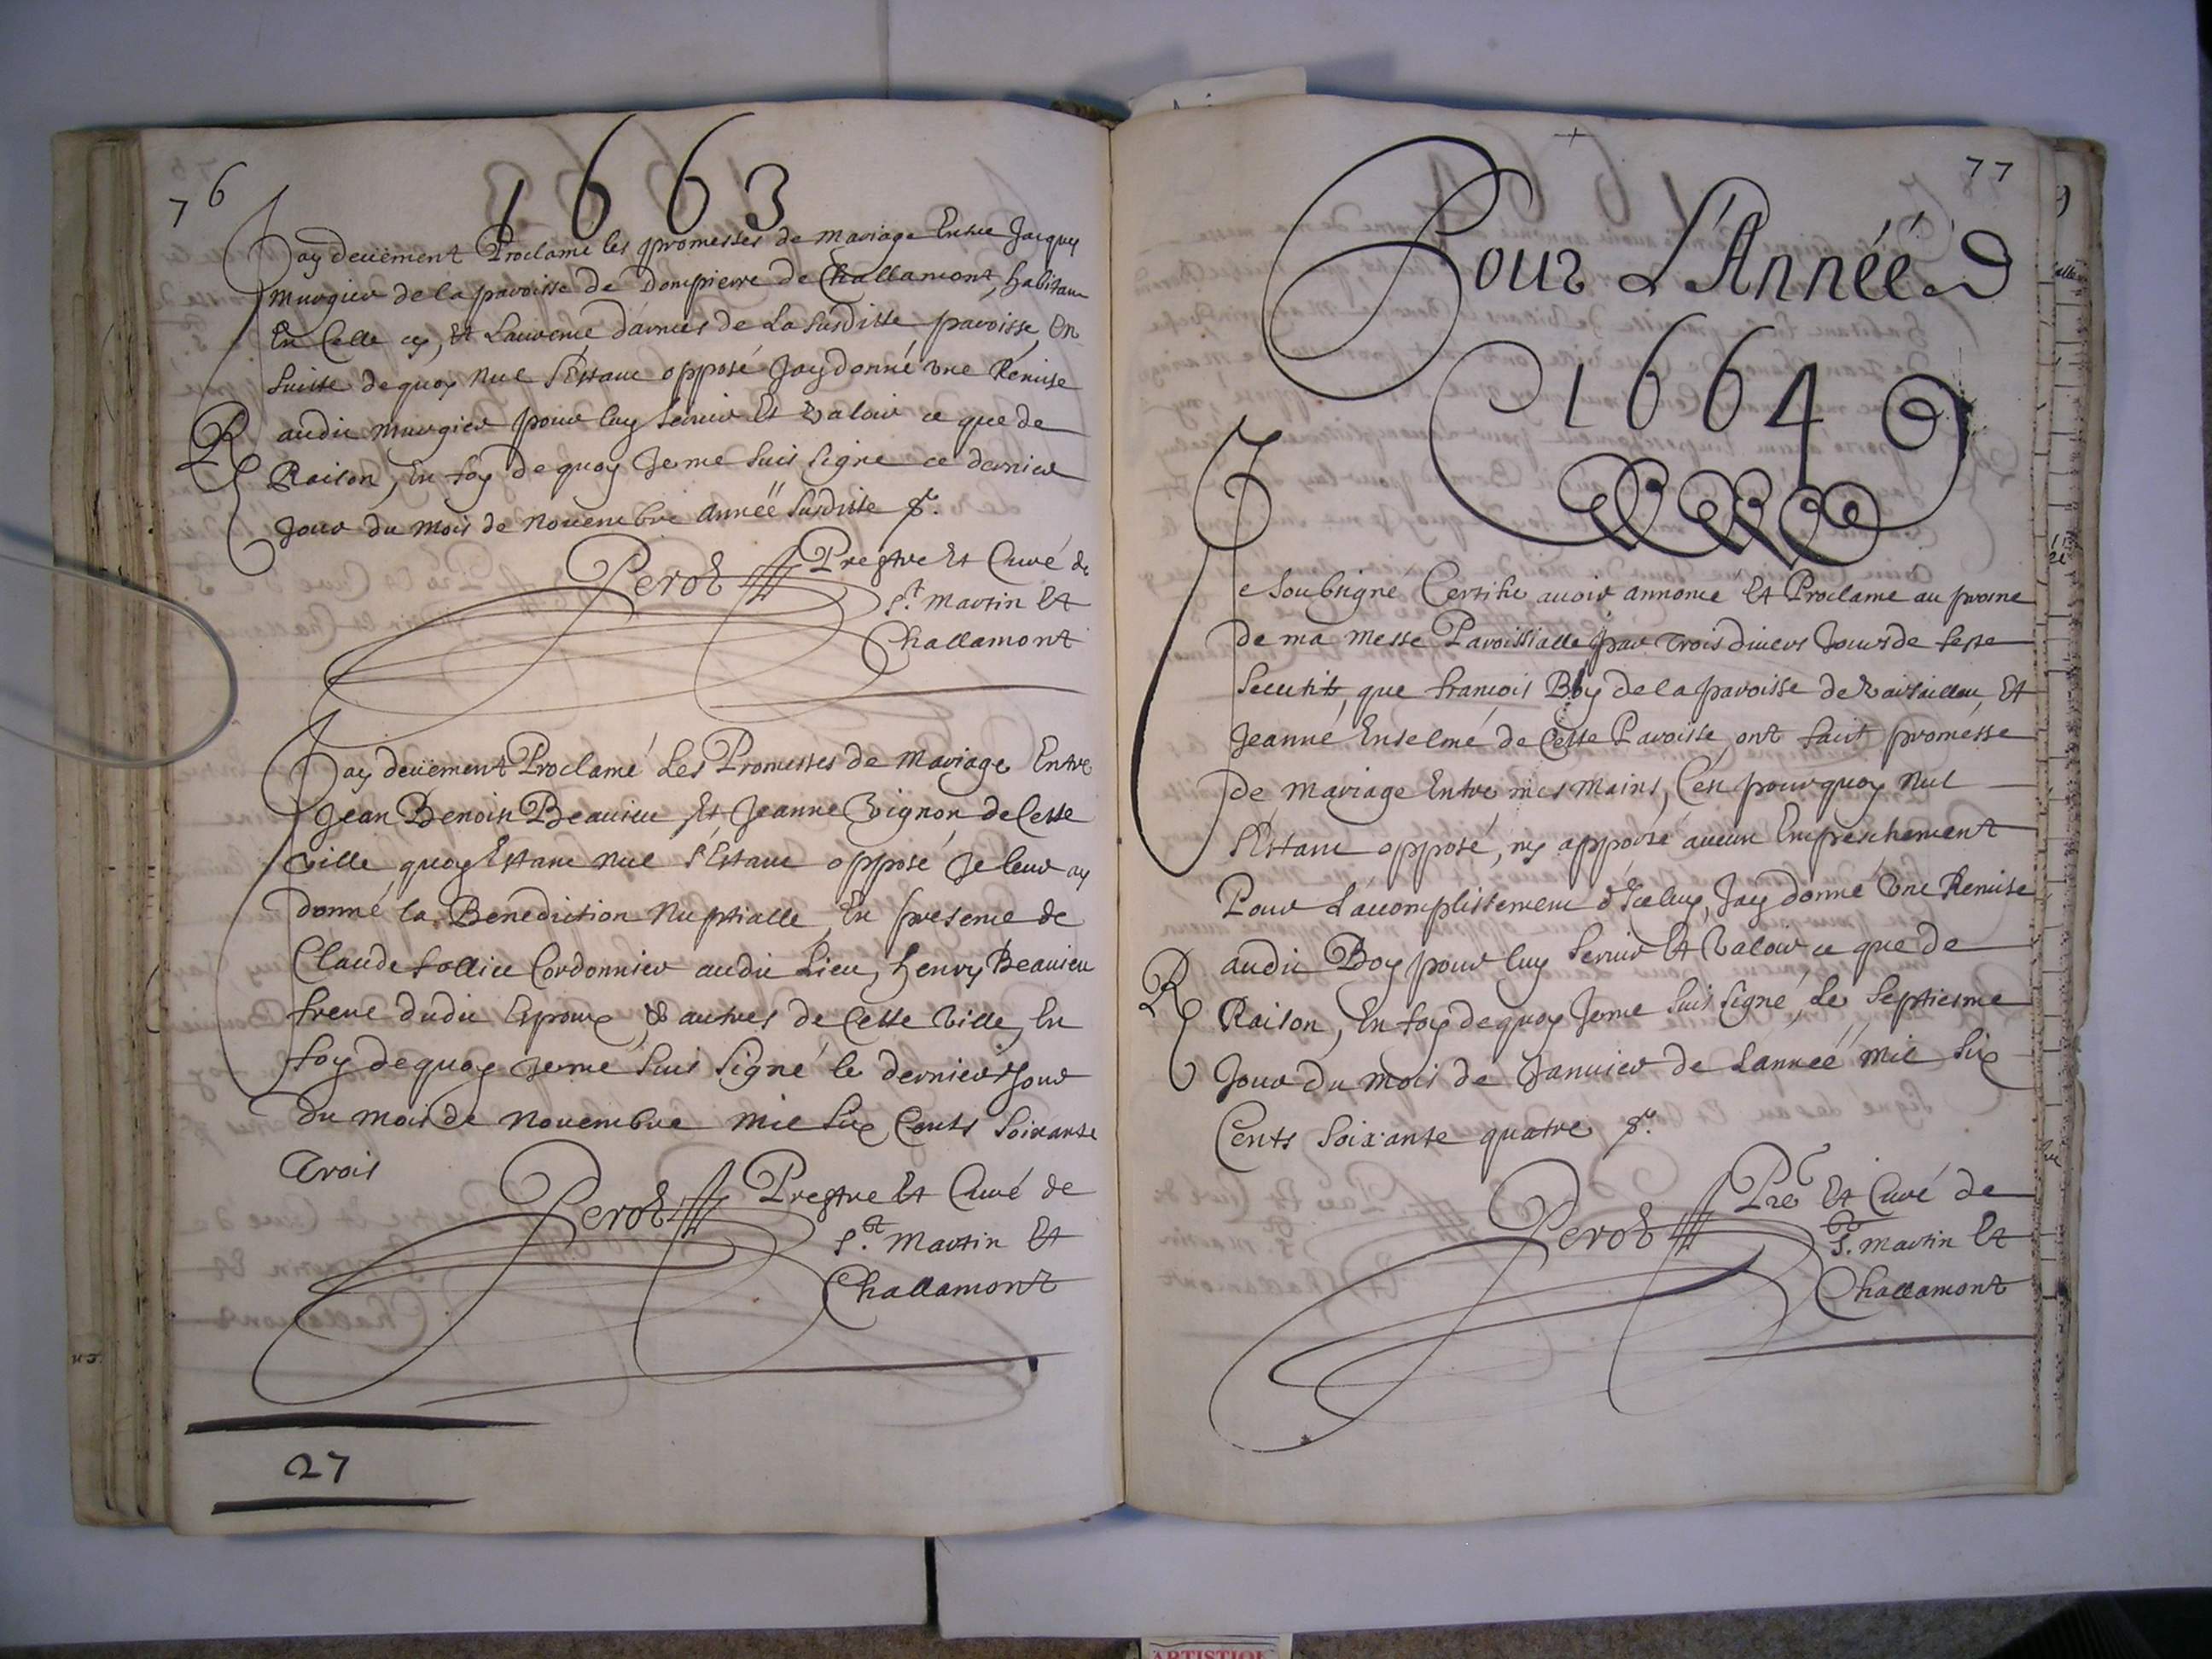 76
1663
Jay deuëment Proclamé les promesses de Mariage Entre Jacques
Murgier de la paroisse de Dompierre de Challamont, habitant
En Celle cy, Et Laurence d'armes de La Susditte paroisse, En
Suitte de quoy Nul S'Estant opposé Jay donné vne Remise
R audit Murgier pour luy Seruir Et Valoir ce que de
Raison, En foy de quoy Je me Suis Signé ce dernier
Jour du Mois de Nouembre Année Susditte
Perot Prestre Et Curé de
St. Martin Et
Challamont
Jay deuëment Proclamé Les Promesses de Mariage Entre
Jean Benoist Beaurieu, Et Jeanne Vignon de Cette
Ville quoy Estant Nul S'Estant opposé Je leur ay
donné la Benediction Nuptialle, En presence de
Claude Cordonnier audit Lieu, henry Beaurieu
frere dudit Espoux, & autres de Cette Ville, En
foy de quoy Je me Suis Signé le dernier Jour
du Mois de Nouembre Mil Six Cents Soixante
Trois
Perot Prestre Et Curé de
St. Martin Et
Challamont
27
77
Pour L'Année
1664
Je Soubsigné Certifie auoir annoncé Et Proclamé au prosne
de ma Messe Paroissialle par Trois diuers Jours de feste
Secutifs, que francois Boy de la paroisse de Et
Jeanne Enselme de Cette Paroisse, ont fait promesse
de Mariage Entre mes Mains, C'est pourquoy Nul
S'Estant opposé, ny apporté aucun Empeschement
Pour L'accomplissement d'Iceluy, Jay donné Vne Remise
audit Boy pour luy Seruir Et Valoir ce que de
R Raison, En foy de quoy Je me Suis Signé, Le Septiesme
Jour du Mois de Januier de L'année Mil Six
Cents Soixante quatre
Perot Pre Et Curé de
St. Martin Et
Challamont